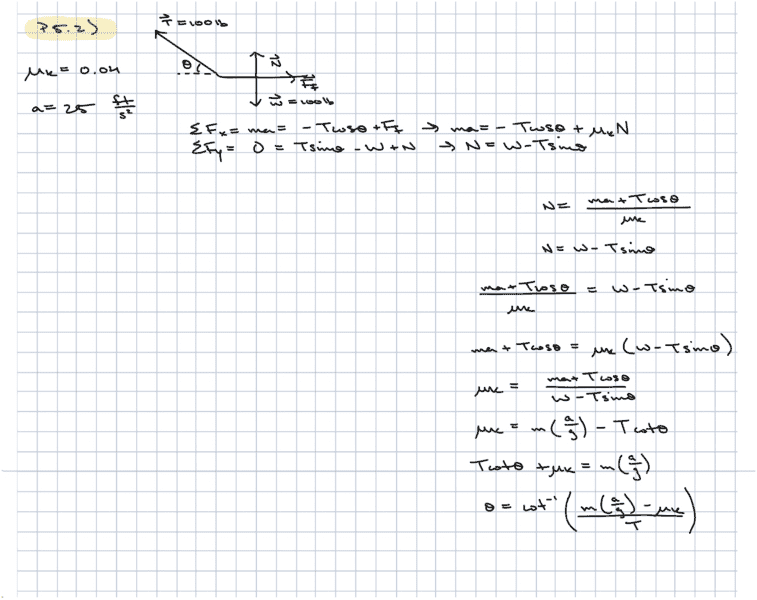 P5.2)
T⃗ = 100 lb
θ
N⃗
F⃗f
W⃗ = 100 lb
μk = 0.04
a = 25 ft/s²
ΣFx = ma = -Tcosθ + Ff → ma = -Tcosθ + μkN
ΣFy = 0 = Tsinθ - W + N → N = W - Tsinθ
N = (ma + Tcosθ)/μk
N = W - Tsinθ
(ma + Tcosθ)/μk = W - Tsinθ
ma + Tcosθ = μk (W - Tsinθ)
μk = (ma + Tcosθ)/(W - Tsinθ)
μk = m(a/g) - Tcotθ
Tcotθ + μk = m(a/g)
θ = cot⁻¹((m(a/g) - μk)/T)